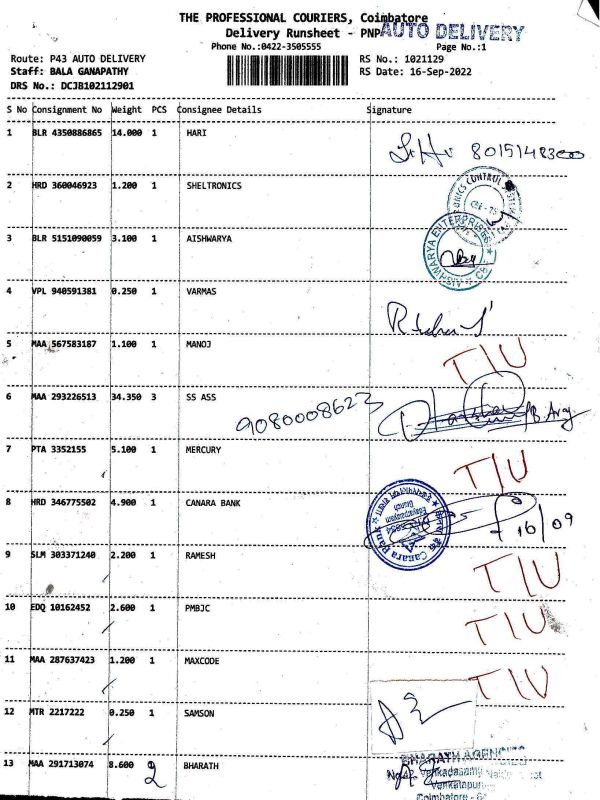 THE PROFESSIONAL COURIERS, Coimbatore
Delivery Runsheet - PNP
AUTO DELIVERY
Phone No.:0422-3505555
Page No.:1
Route: P43 AUTO DELIVERY
RS No.: 1021129
Staff: BALA GANAPATHY
RS Date: 16-Sep-2022
DRS No.: DCJB102112901
S No Consignment No Weight PCS Consignee Details Signature
1 BLR 4350886865 14.000 1 HARI
2 HRD 360046923 1.200 1 SHELTRONICS
3 BLR 5151090059 3.100 1 AISHWARYA
AISHWARYA ENTERPRISES
4 VPL 940591381 0.250 1 VARMAS
5 MAA 567583187 1.100 1 MANOJ
T/U
6 MAA 293226513 34.350 3 SS ASS
9080008623
7 PTA 3352155 5.100 1 MERCURY
T/U
8 HRD 346775502 4.900 1 CANARA BANK
Canara Bank
16/09
9 SLM 303371240 2.200 1 RAMESH
T/U
10 EDQ 10162452 2.600 1 PMBJC
T/U
11 MAA 287637423 1.200 1 MAXCODE
T/U
12 MTR 2217222 0.250 1 SAMSON
13 MAA 291713074 8.600 2 BHARATH
BHARATH AGENCIES
Coimbatore